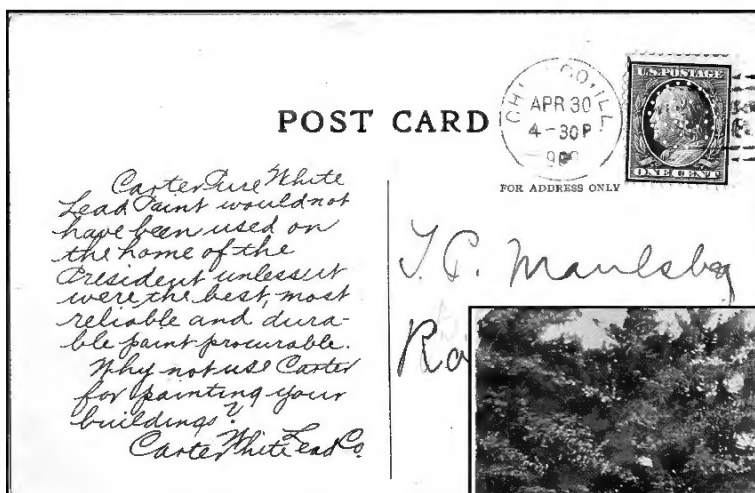 U.S. POSTAGE
ONE CENT
APR 30
4-30P
POST CARD
FOR ADDRESS ONLY
Carter Pure White
Lead Paint would not
have been used on
the home of the
President unless it
were the best, most
reliable and dura-
ble paint procurable.
Why not use Carter
for painting your
buildings?
Carter White Lead Co.
T. P. Maulsby